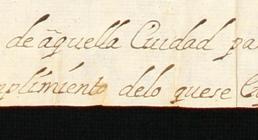 de aquella Ciudad pa
plimiento delo quese